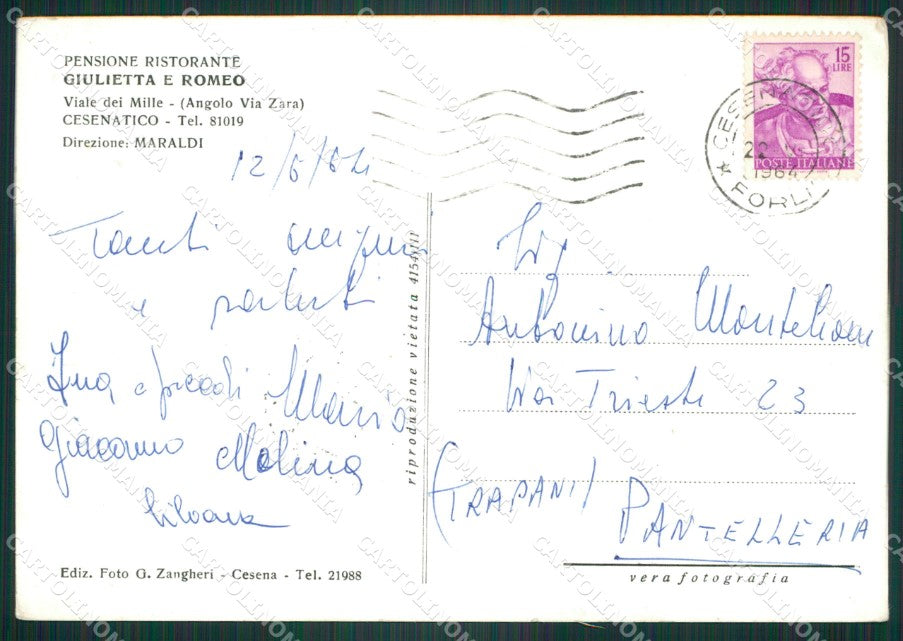 PENSIONE RISTORANTE
GIULIETTA E ROMEO
Viale dei Mille - (Angolo Via Zara)
CESENATICO - Tel. 81019
Direzione: MARALDI
12/6/64
Tanti auguri
e saluti
Maria
Giacomo Molina
Silvana
Ediz. Foto G. Zangheri - Cesena - Tel. 21988
riproduzione vietata
15
LIRE
POSTE ITALIANE
CESENA
1964
FORLI
Sig
Antonino
Via Trieste 23
(TRAPANI)
PANTELLERIA
vera fotografia
CARTOLINOMANIA